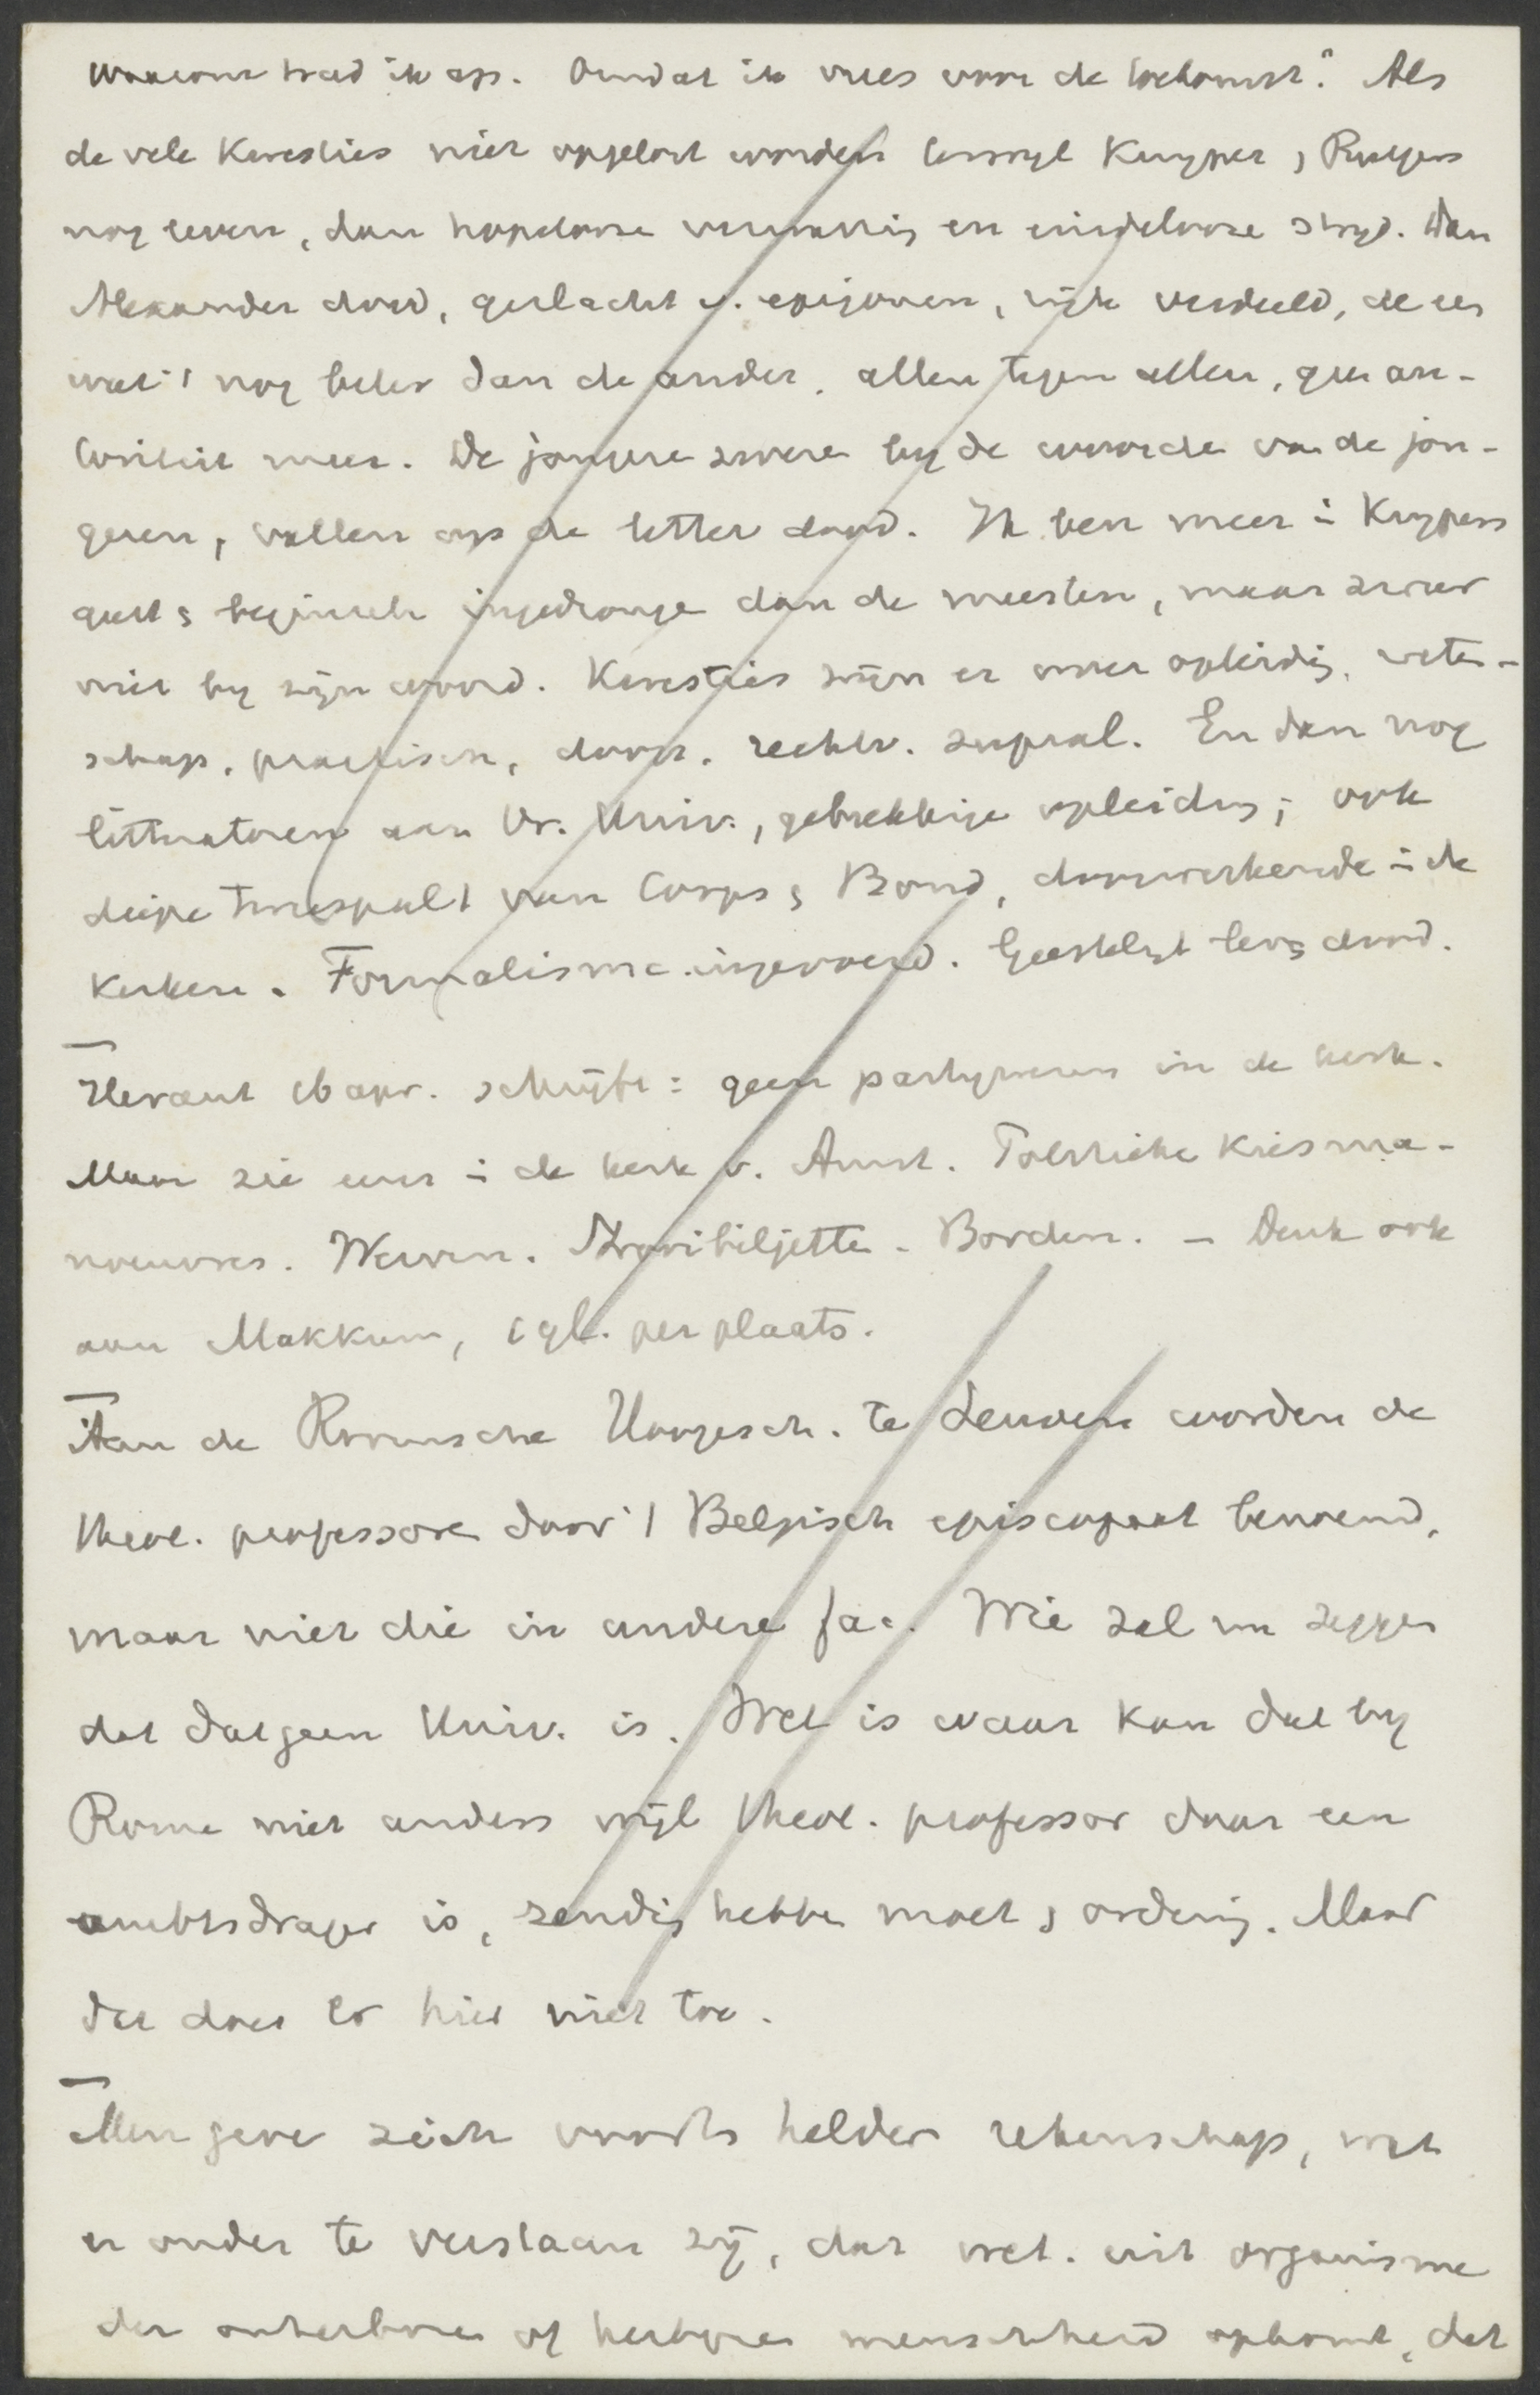 Waarom trad ik op. Omdat ik vrees voor de toekomst. Als
de vele kwesties niet opgelost worden terwyl Kuyper, Rutgers
nog leven, dan hopelooze verwarring en eindelooze stryd. Dan
Alexander dood, geslacht v. epigonen, rijk verdeeld, de een
weet 't nog beter dan de ander, allen tegen allen, geen au-
toriteit meer. De jongere zwere by de woorde van de jon-
geren, vallen op de letter dood. Ik ben meer i Kuypers
geest & beginsele ingedronge dan de meesten, maar zweer
niet by zijn woord. Kwesties zijn er over opleidig, weten-
schap, practisch, doops. rechtv. supral. En dan nog
litteratoren aan Vr. Univ., gebrekkige opleiding; ook
diepe tweespalt van Corps & Bond, doorwerkende i de
Kerken. Formalisme ingevoerd. Geestelijk leve dood.
Heraut 16 apr. schrijft: geen partywezen in de kerk.
Maar zie eens i de kerk v. Amst. Politieke Kiesma-
noeuvres. Werven. Strooibiljette. Borden. – Denk ook
aan Makkum, 1 gl. per plaats.
Aan de Roomsche Hoogesch. te Leuven worden de
theol. professore door 't Belgisch episcopaat benoemd,
maar niet die in andere fac. Wie zal nu zegge
dat dat geen Univ. is. Wel is waar kan dat by
Rome niet anders wijl theol. professor daar een
ambtsdrager is, zendig hebbe moet & ordenig. Maar
dat doet er hier niet toe.
Men geve zich voorts helder rekenschap, wat
er onder te verstaan zij, dat wet. uit organisme
der onherbore of herbore menschheid opkomt, dat